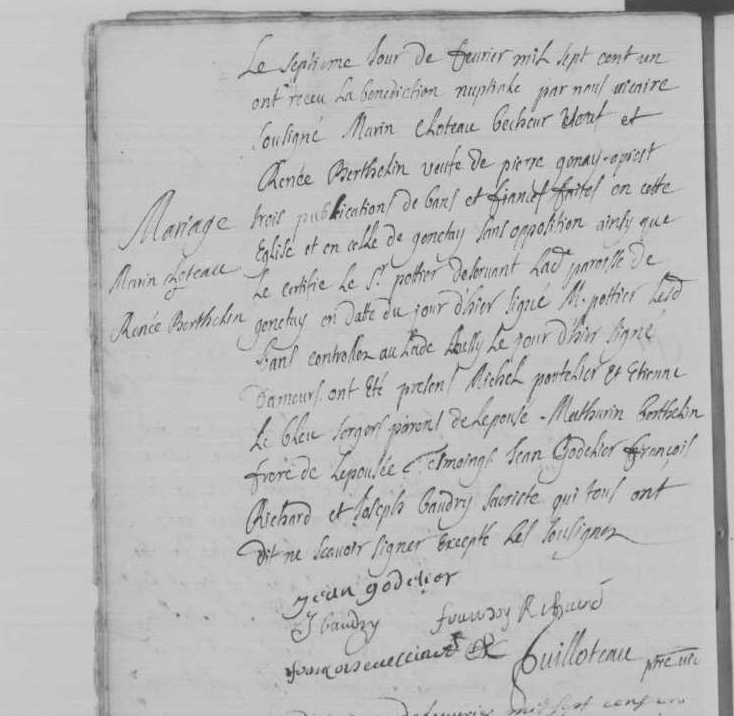 Le septieme Jour de fevrier mil sept cent un
ont receu La benediction nuptiale par nous vicaire
soussigné Marin Choteau becheur veuf et
Renée Berthelin veufe de pierre gonay aprest
trois publications de bans et fiances faites en cette
Mariage
Eglise et en celle de gonetay sans opposition ainsy que
Marin Choteau
Le certifie Le Sr pottier deservant Lad paroisse de
Renée Berthelin
gonetay en datte du jour d'hier signé M. pottier Lesd
bans controllez au Lude Le jour d'hier signé
Damours. ont Eté presens Michel pontelier Et Etienne
Le bleu sergers parens de Lepousé. Mathurin Berthelin
frere de Lepousée Temoings Jean Godelier François
Richard et Joseph baudry sacriste qui tous ont
Dit ne scavoir signer Excepté Les soussignez
Jean godelier
J baudry
Guilloteau ptre vic